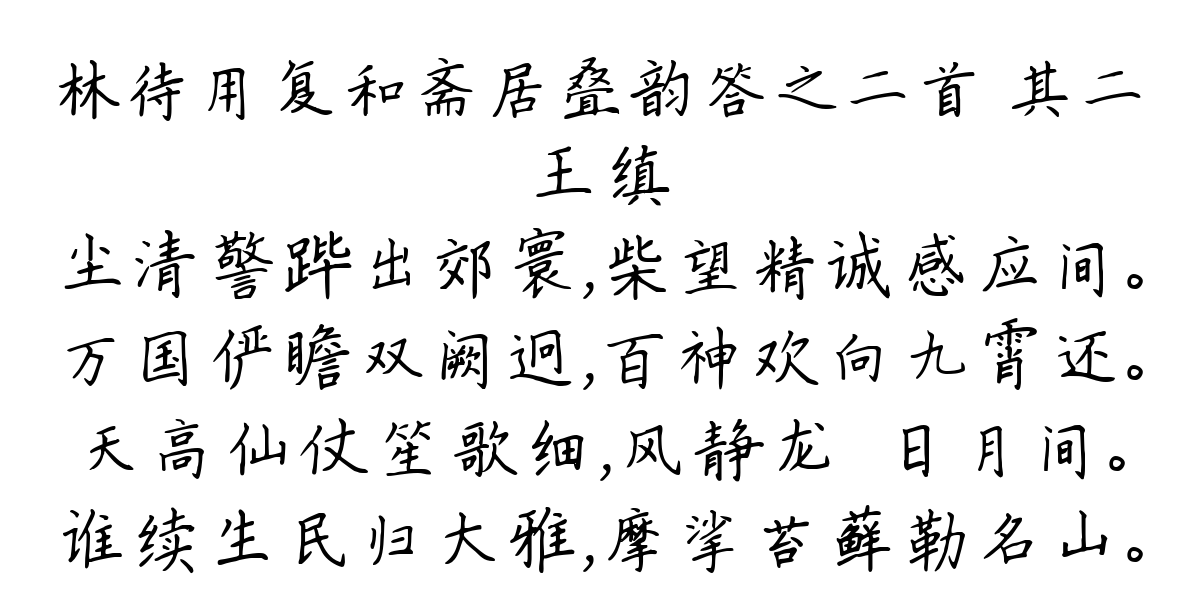 林待用复和斋居叠韵答之二首 其二
王缜
尘清警跸出郊寰,柴望精诚感应间。
万国俨瞻双阙迥,百神欢向九霄还。
天高仙仗笙歌细,风静龙 日月间。
谁续生民归大雅,摩挲苔藓勒名山。